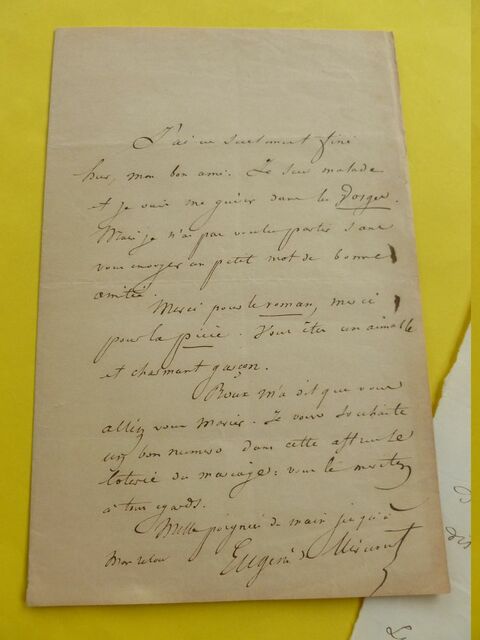 J'ai eu seulement fini
hier, mon bon ami. Je suis malade
et je vais me guérir dans les Vosges.
Mais je n'ai pas voulu partir sans
vous envoyer un petit mot de bonne
amitié.
Merci pour le roman, merci
pour la pièce. Vous êtes un aimable
et charmant garçon.
Roux m'a dit que vous
alliez vous marier. Je vous souhaite
un bon numero dans cette affreuse
loterie du mariage : vous le méritez
à tous égards.
Mille poignées de main jusqu'à
mon retour
Eugène de Mirecourt